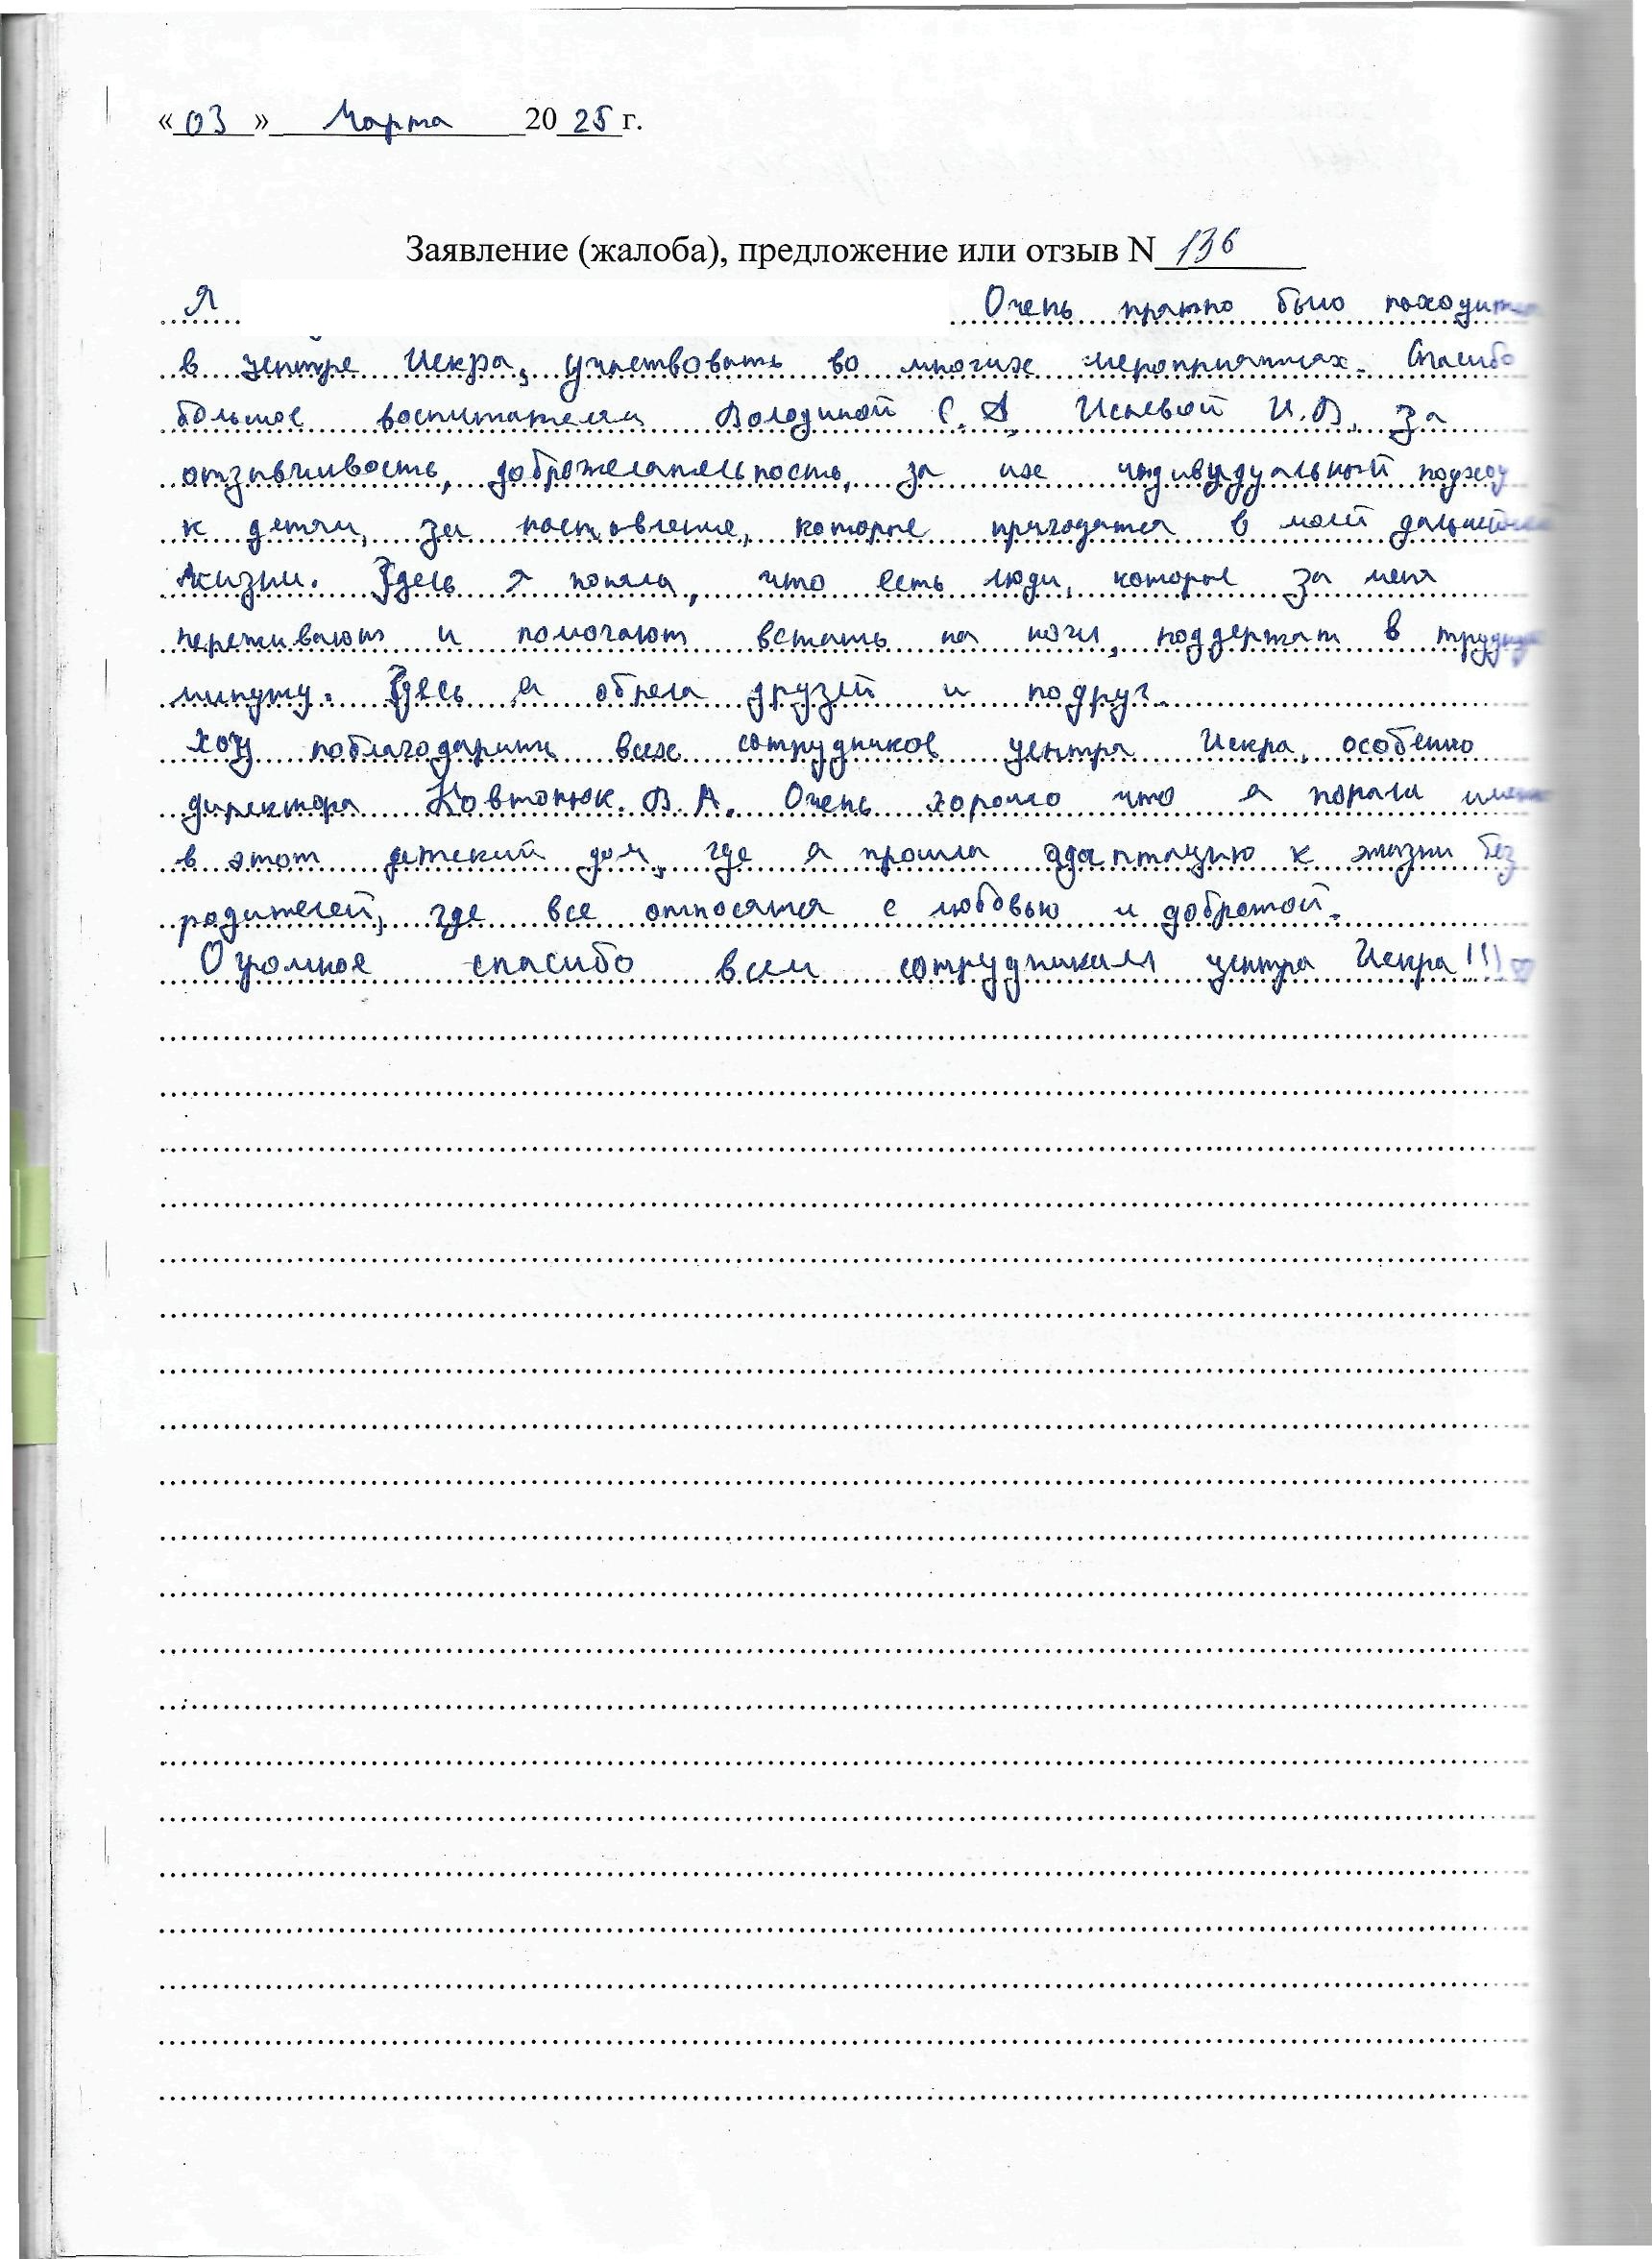 «03» Марта 2025 г.
Заявление (жалоба), предложение или отзыв N 136
Я Очень приятно было находиться
в центре Искра, участвовать во многих мероприятиях. Спасибо
большое воспитателям Володиной С. А. И.В. за
отзывчивость, доброжелательность, за их индивидуальный подход
к детям, за наставление, которые пригодятся в моей дальнейшей
жизни. Здесь я поняла, что есть люди, которые за меня
переживают и помогают встать на ноги, поддержат в трудную
минуту. Здесь я обрела друзей и подруг.
Хочу поблагодарить всех сотрудников центра Искра, особенно
директора Ковтонюк. В. А. Очень хорошо что я попала именно
в этот детский дом, где я прошла адаптацию к жизни без
родителей, где все относятся с любовью и добротой.
Огромное спасибо всем сотрудникам центра Искра!!!